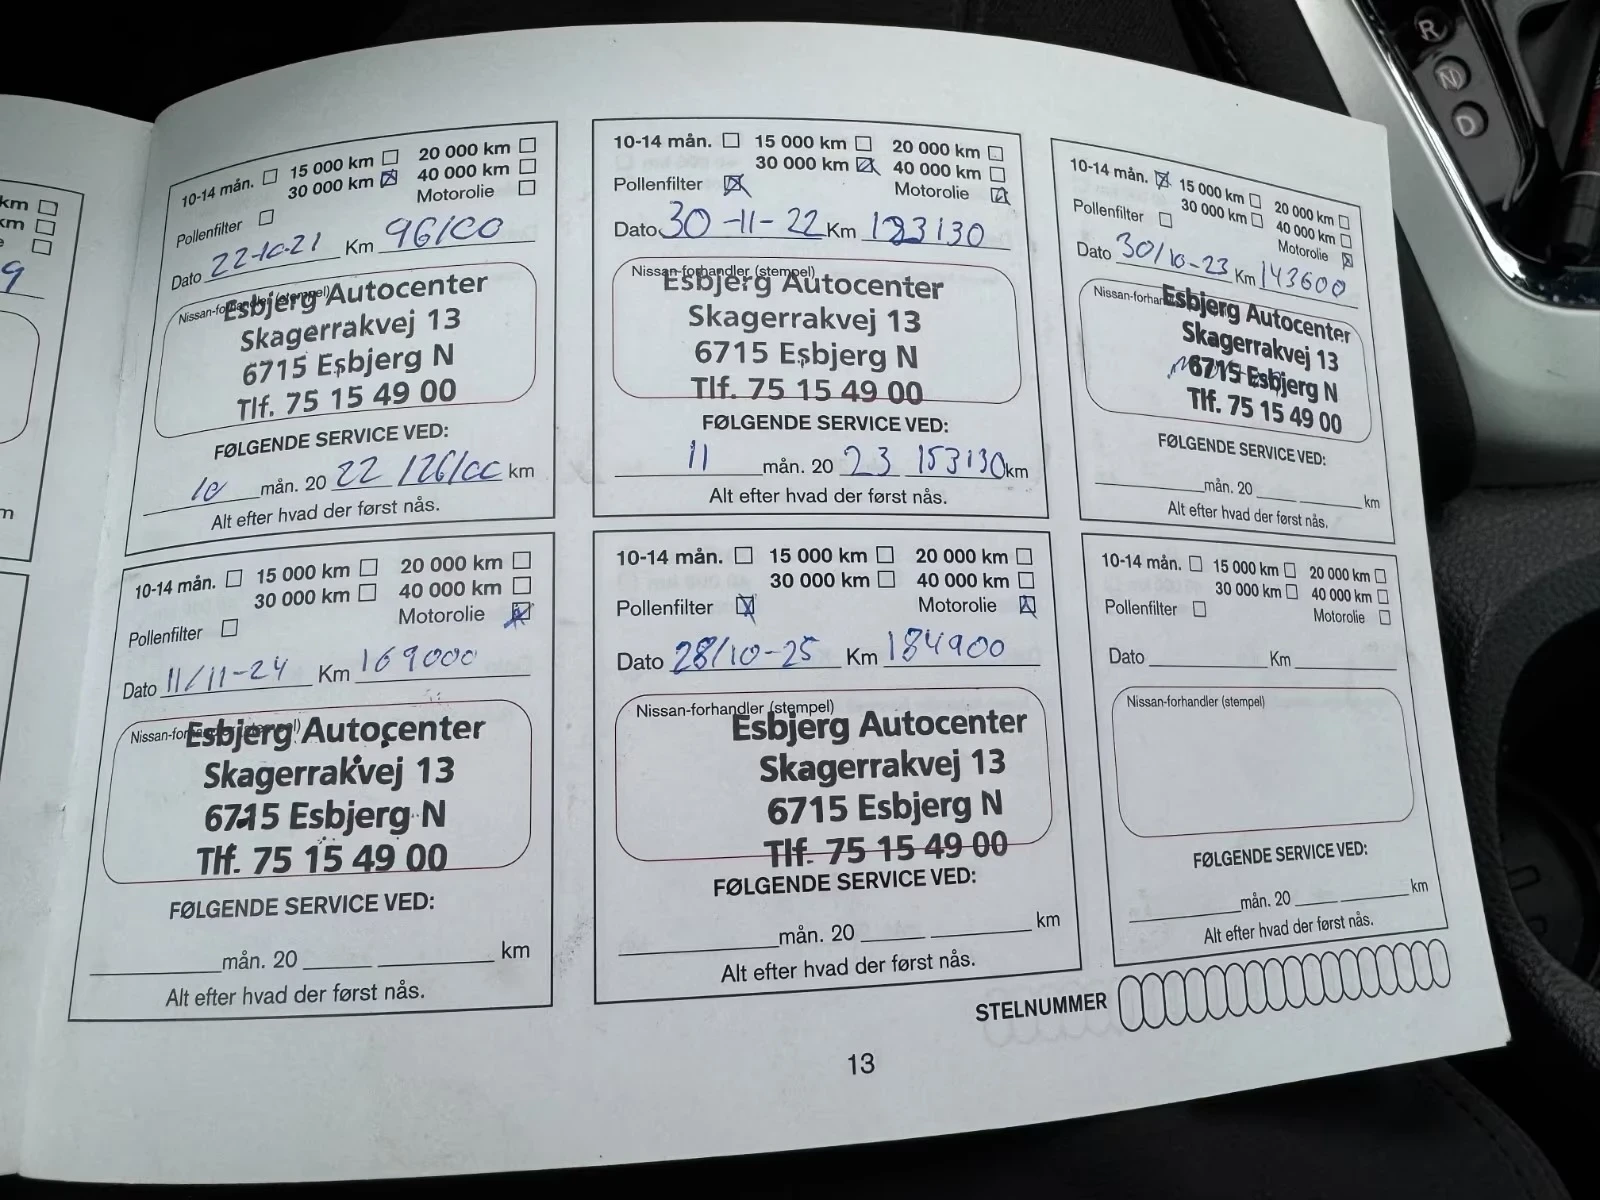 km
km
9
m
10-14 mån. 15 000 km 20 000 km
30 000 km 40 000 km
Pollenfilter Motorolie
Dato 22-10-21 Km 96100
Nissan-forhandler (stempel)
Esbjerg Autocenter
Skagerrakvej 13
6715 Esbjerg N
Tlf. 75 15 49 00
FØLGENDE SERVICE VED:
10 mån. 20 22 126100 km
Alt efter hvad der først nås.
10-14 mån. 15 000 km 20 000 km
30 000 km 40 000 km
Pollenfilter Motorolie
Dato 30-11-22 Km 123130
Nissan-forhandler (stempel)
Esbjerg Autocenter
Skagerrakvej 13
6715 Esbjerg N
Tlf. 75 15 49 00
FØLGENDE SERVICE VED:
11 mån. 20 23 153130 km
Alt efter hvad der først nås.
10-14 mån. 15 000 km 20 000 km
30 000 km 40 000 km
Pollenfilter Motorolie
Dato 30/10-23 Km 143600
Esbjerg Autocenter
Skagerrakvej 13
6715 Esbjerg N
Tlf. 75 15 49 00
FØLGENDE SERVICE VED:
mån. 20 km
Alt efter hvad der først nås.
10-14 mån. 15 000 km 20 000 km
30 000 km 40 000 km
Pollenfilter Motorolie
Dato 11/11-24 Km 169000
Esbjerg Autocenter
Skagerrakvej 13
6715 Esbjerg N
Tlf. 75 15 49 00
FØLGENDE SERVICE VED:
mån. 20 km
Alt efter hvad der først nås.
10-14 mån. 15 000 km 20 000 km
30 000 km 40 000 km
Pollenfilter Motorolie
Dato 28/10-25 Km 184900
Nissan-forhandler (stempel)
Esbjerg Autocenter
Skagerrakvej 13
6715 Esbjerg N
Tlf. 75 15 49 00
FØLGENDE SERVICE VED:
mån. 20 km
Alt efter hvad der først nås.
10-14 mån. 15 000 km 20 000 km
30 000 km 40 000 km
Pollenfilter Motorolie
Dato Km
Nissan-forhandler (stempel)
FØLGENDE SERVICE VED:
mån. 20 km
Alt efter hvad der først nås.
STELNUMMER
13
R
N
D